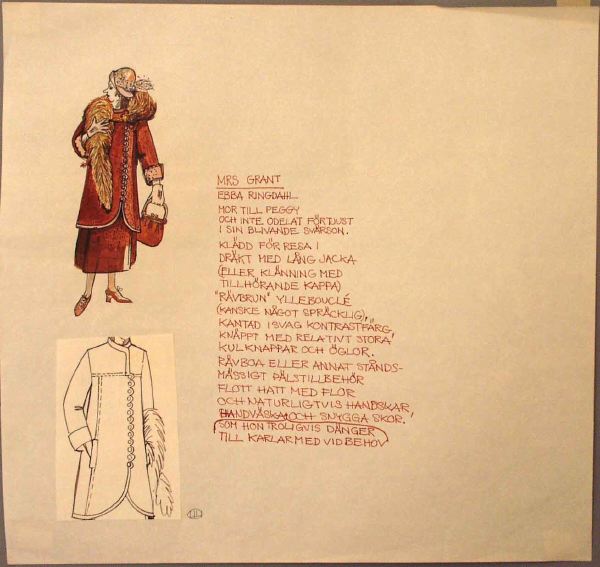 MRS GRANT
EBBA RINGDAHL
MOR TILL PEGGY
OCH INTE ODELAT FÖRTJUST
I SIN BLIVANDE SVÄRSON.
KLÄDD FÖR RESA I
DRÄKT MED LÅNG JACKA
(ELLER KLÄNNING MED
TILLHÖRANDE KAPPA)
"RÄVBRUN" YLLEBOUCLÉ
(KANSKE NÅGOT SPRÄCKLIG),
KANTAD I SVAG KONTRASTFÄRG,
KNÄPPT MED RELATIVT STORA
KULKNAPPAR OCH ÖGLOR.
RÄVBOA ELLER ANNAT STÅNDS-
MÄSSIGT PÄLSTILLBEHÖR
FLOTT HATT MED FLOR
OCH NATURLIGTVIS HANDSKAR,
HANDVÄSKA OCH SNYGGA SKOR.
(SOM HON TROLIGVIS DÄNGER
TILL KARLAR MED VID BEHOV